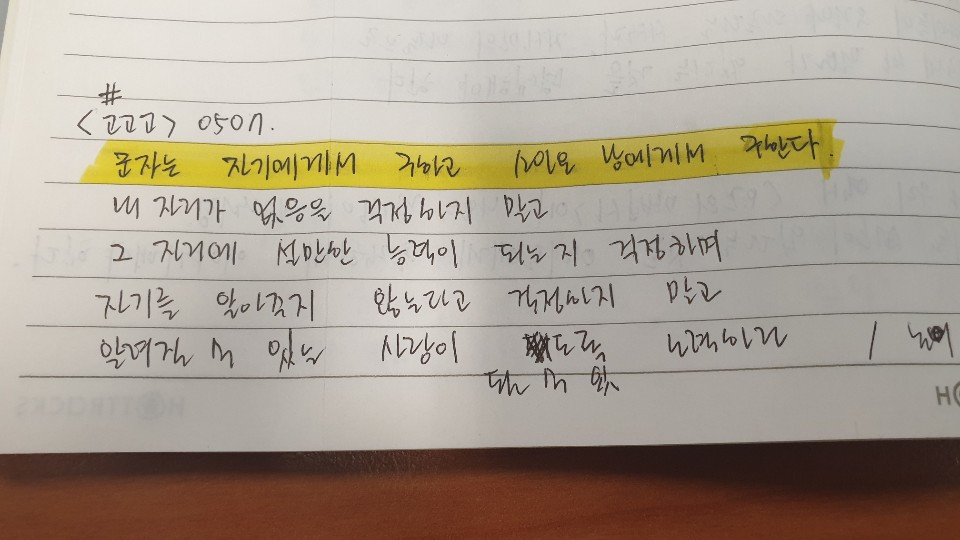 #
<고고고> 0507.
군자는 자기에게서 구하고 소인은 남에게서 구한다.
내 자리가 없음을 걱정하지 말고
그 자리에 설만한 능력이 되는지 걱정하며
자기를 알아주지 않는다고 걱정하지 말고
알려질 수 있는 사람이 도록 노력하라 / 논어
될 수 있
HOTTRACKS